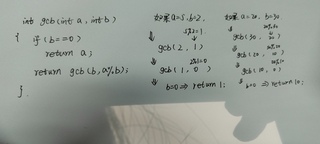 int gcb(int a, int b)
{
if(b==0)
return a;
return gcb(b,a%b);
}
如果a=5,b=2,
↓ 5%2=1
gcb(2, 1)
↓ 2%1=0
gcb(1, 0)
↓
b=0 => return 1;
如果 a=20, b=30,
gcb(30, 20)
gcb(20, 10)
gcb(10, 0)
b=0 => return 10;